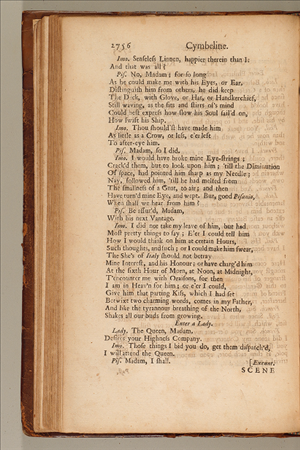 2756 Cymbeline.
Imo. Senseless Linnen, happier therein than I:
And that was all?
Pis. No, Madam; for so long
As he could make me with his Eyes, or Ear,
Distinguish him from others, he did keep
The Deck, with Glove, or Hat, or Handkerchief,
Still waving, as the fits and stirrs of's mind
Could best express how slow his Soul sail'd on,
How swift his Ship.
Imo. Thou should'st have made him
As little as a Crow, or less, e'er left
To after-eye him.
Pis. Madam, so I did.
Imo. I would have broke mine Eye-strings;
Crack'd them, but to look upon him; 'till the Diminution
Of space, had pointed him sharp as my Needle;
Nay, followed him, 'till he had melted from
The smalness of a Gnat, to air; and then
Have turn'd mine Eye, and wept. But, good Pisanio,
When shall we hear from him?
Pis. Be assur'd, Madam,
With his next Vantage.
Imo. I did not take my leave of him, but had
Most pretty things to say; E'er I could tell him
How I would think on him at certain Hours,
Such thoughts, and such; or I could make him swear,
The She's of Italy should not betray
Mine Interest, and his Honour; or have charg'd him
At the sixth Hour of Morn, at Noon, at Midnight,
T'encounter me with Orasons, for then
I am in Heav'n for him; or e'er I could,
Give him that parting Kiss, which I had set
Betwixt two charming words, comes in my Father,
And like the tyrannous breathing of the North,
Shakes all our buds from growing.
Enter a Lady.
Lady. The Queen, Madam,
Desires your Highness Company.
Imo. Those things I bid you do, get them dispatch'd,
I will attend the Queen.
Pis. Madam, I shall. [Exeunt.
SCENE